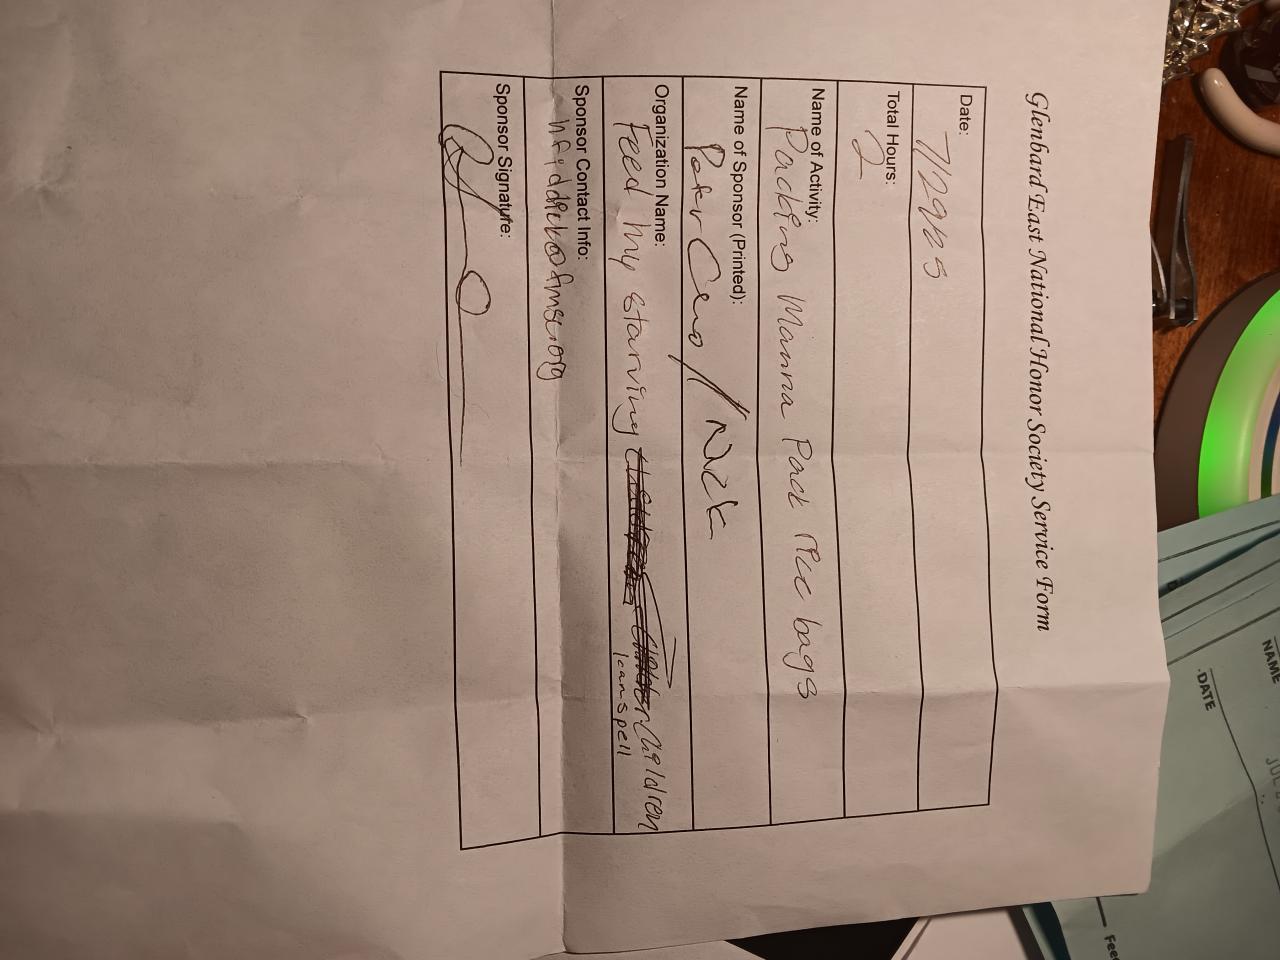 Glenbard East National Honor Society Service Form
Date:
Total Hours:
2
Name of Activity:
Packing Manna Pack rice bags
Name of Sponsor (Printed):
/ Nick
Organization Name:
Feed my starving Children
I can spell
Sponsor Contact Info:
Sponsor Signature:
NAME
DATE